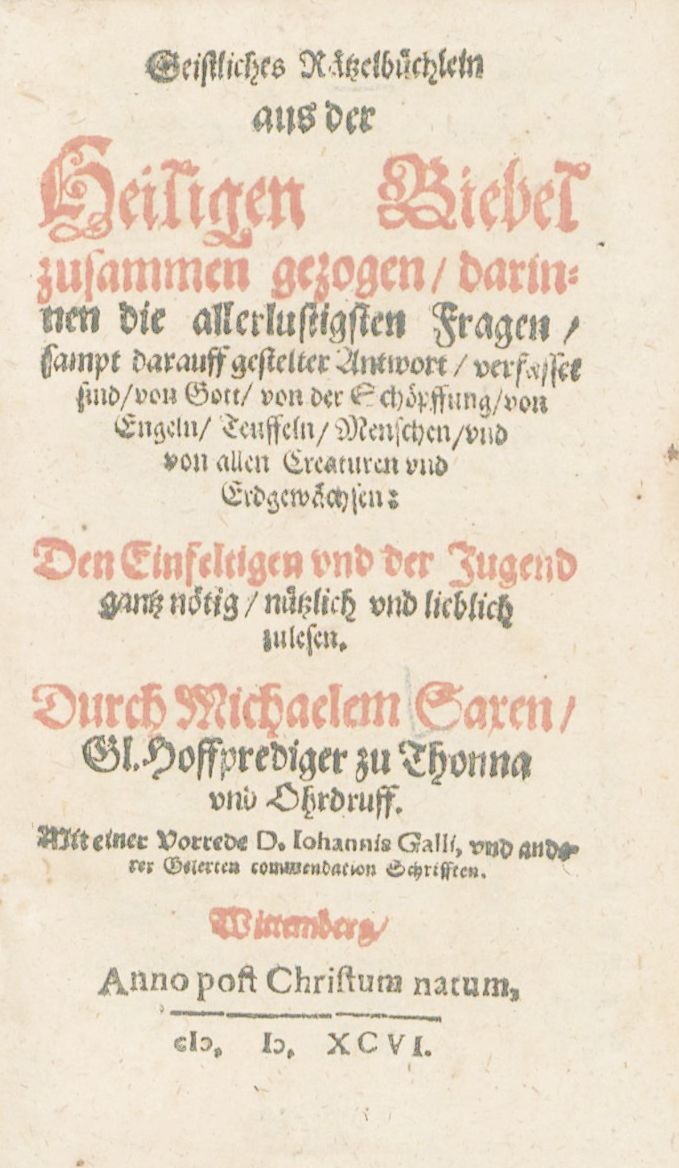 Geistliches Rätzelbüchlein
aus der
Heiligen Biebel
zusammen gezogen / darin⸗
nen die allerlustigsten Fragen /
sampt darauff gestelter Antwort / verfasset
sind / von Gott / von der Schöpffung / von
Engeln / Teuffeln / Menschen / vnd
von allen Creaturen vnd
Erdgewächsen:
Den Einfeltigen vnd der Jugend
gantz nötig / nützlich vnd lieblich
zulesen.
Durch Michaelem Saxen /
Gl. Hoffprediger zu Thonna
vnd Ohrdruff.
Mit einer Vorrede D. Iohannis Galli, vnd ande⸗
rer Gelerten commendation Schrifften.
Wittemberg /
Anno post Christum natum,
cIɔ, Iɔ, XCVI.